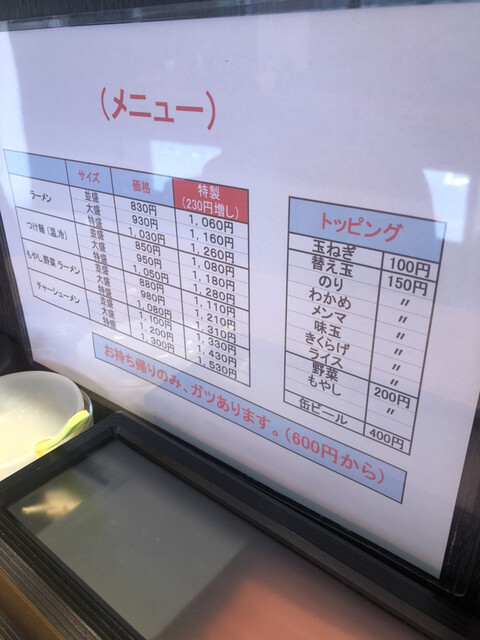 (メニュー)
サイズ 価格 特製
(230円増し)
ラーメン 並盛 830円 1,060円
大盛 930円 1,160円
特盛 1,030円 1,260円
つけ麺(温冷) 並盛 850円 1,080円
大盛 950円 1,180円
特盛 1,050円 1,280円
もやし野菜ラーメン 並盛 880円 1,110円
大盛 980円 1,210円
特盛 1,080円 1,310円
チャーシューメン 並盛 1,100円 1,330円
大盛 1,200円 1,430円
特盛 1,300円 1,530円
トッピング
玉ねぎ 100円
替え玉 150円
のり 〃
わかめ 〃
メンマ 〃
味玉 〃
きくらげ 〃
ライス 〃
野菜 200円
もやし 〃
缶ビール 400円
お持ち帰りのみ、ガツあります。(600円から)